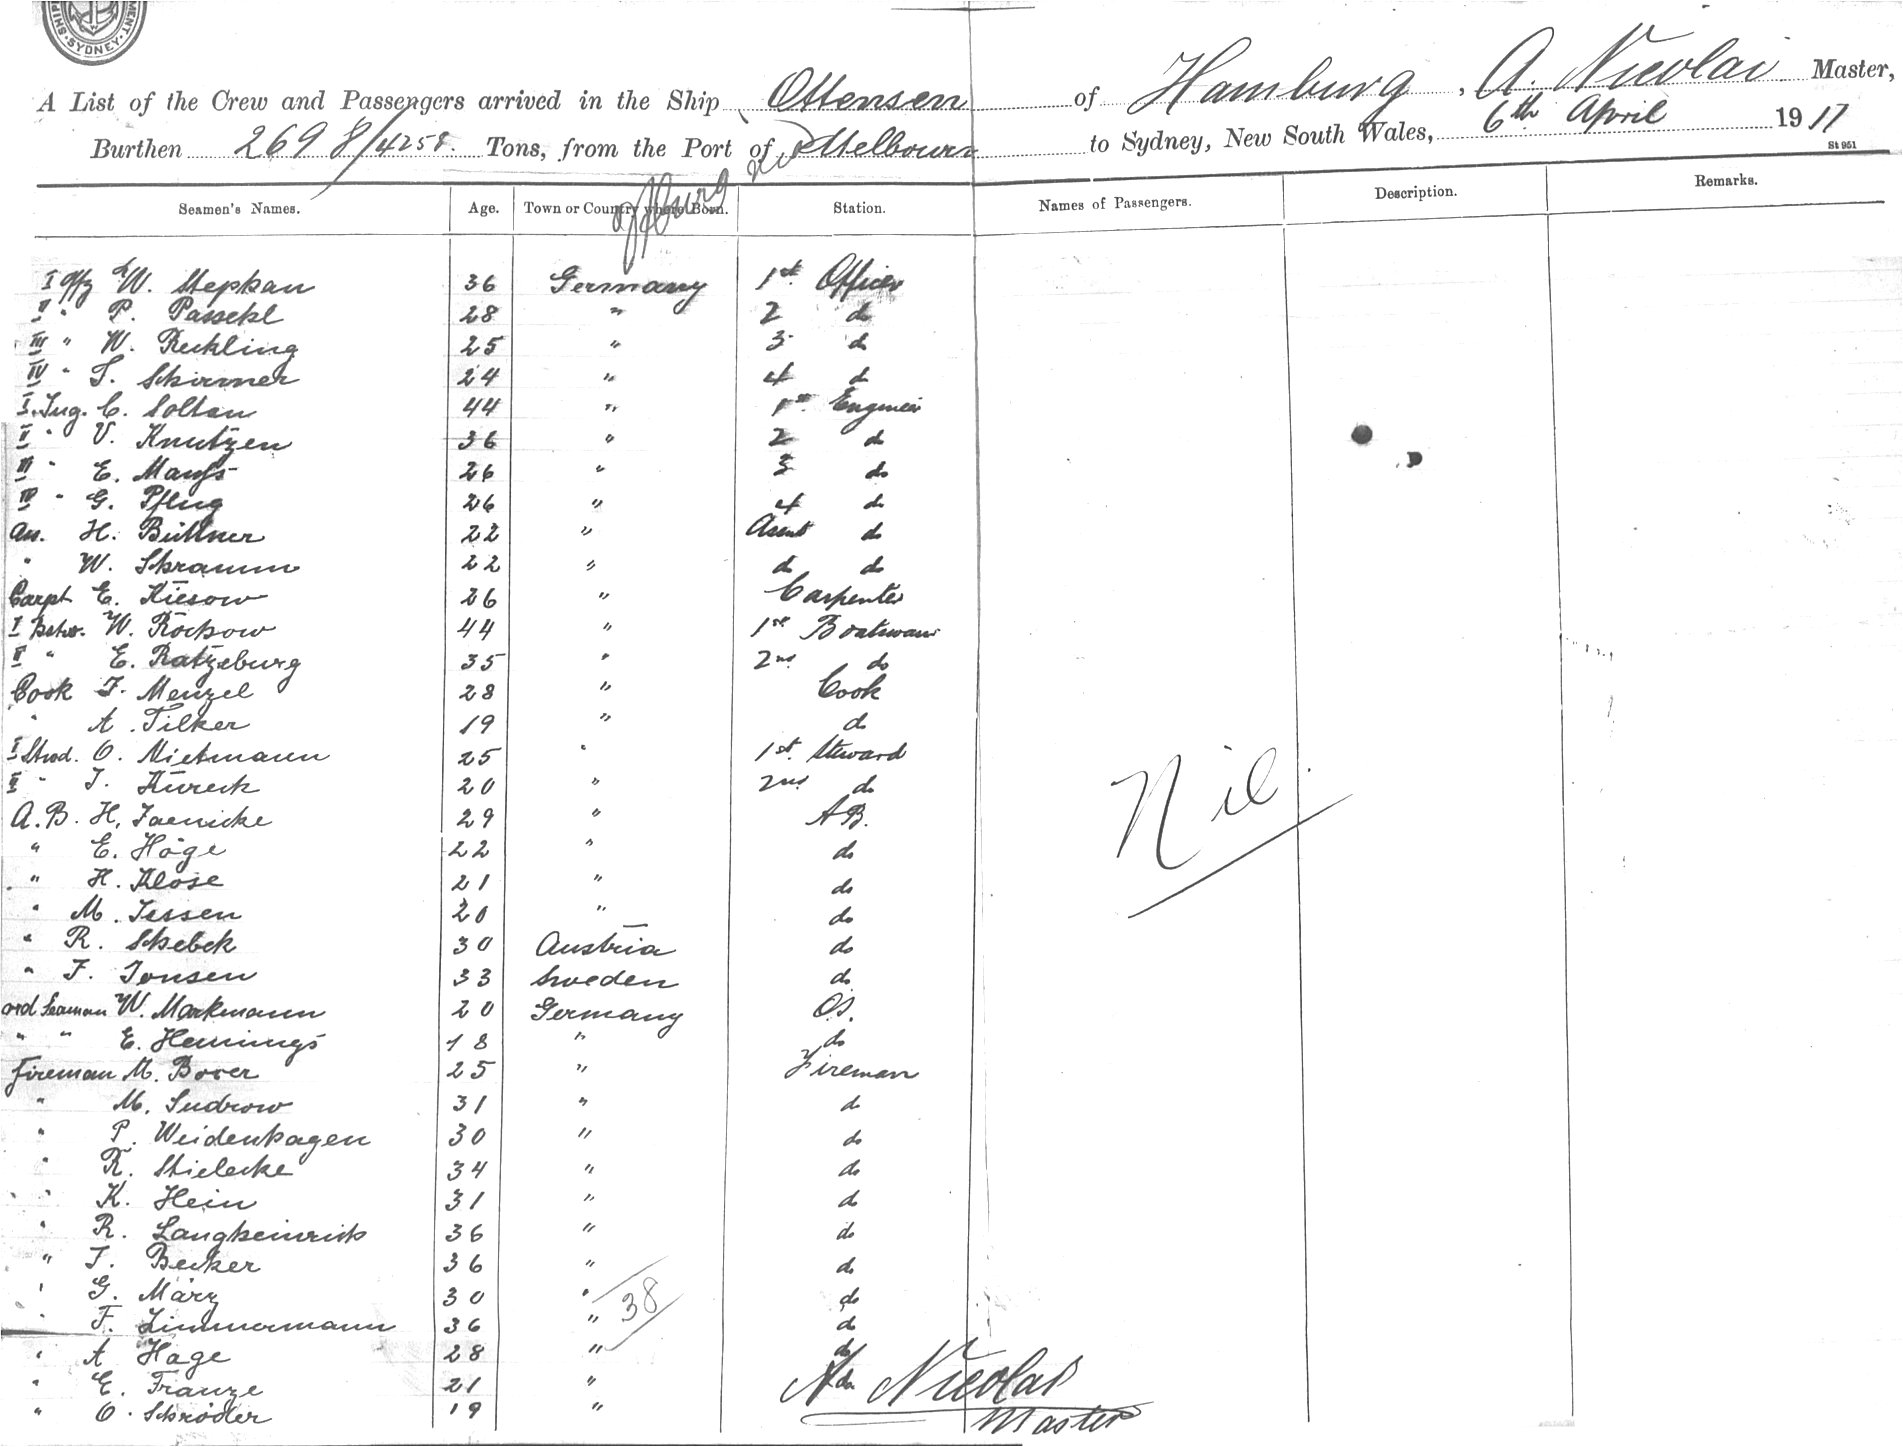 SYDNEY
A List of the Crew and Passengers arrived in the Ship Ottensen of Hamburg, A. Nicolai Master,
Burthen 2698/4258. Tons, from the Port of Melbourn to Sydney, New South Wales, 6th April 1911
St 951
Seamen's Names. Age. Town or Country where Born. Station. Names of Passengers. Description. Remarks.
I W. Stephan 36 Germany 1st. Officer
II " P. 28 " 2 do
III " W. Reckling 25 " 3 do
IV " Schirmer 24 " 4 do
I. Ing. C. Soltau 44 " 1st. Engineer
II " V. Knutzen 36 " 2 do
III " E. 26 " 3 do
IV " G. Pflug 26 " 4 do
H. Büttner 22 " do
" W. Schramm 22 " do do
Carpt E. Kiesow 26 " Carpenter
I W. Rockow 44 " 1st Boatswain
II " E. Ratzeburg 35 " 2nd do
Cook F. Menzel 28 " Cook
" A. Tilker 19 " do
I Stwd. O. Mietmann 25 " 1st. Steward
II " Kureck 20 " 2nd do
A.B. H. Jaenicke 29 " AB.
" E. Höge 22 " do
" H. Klose 21 " do
" M. Jessen 20 " do
" R. 30 Austria do
" F. Jonsen 33 Sweden do
ord Seaman W. Markmann 20 Germany O.S.
" " E. Hennings 18 " do
Fireman M. 25 " Fireman
" M. 31 " do
" P. Weidenhagen 30 " do
" R. Stielecke 34 " do
" K. Hein 31 " do
" R. Langheinrich 36 " do
" Becker 36 " do
" G. März 30 " do
" F. Zimmermann 36 " do
" A Hage 28 " do
" E. Franze 21 " do
" O. Schröder 19 "
Nil
38
Nicolai
Master